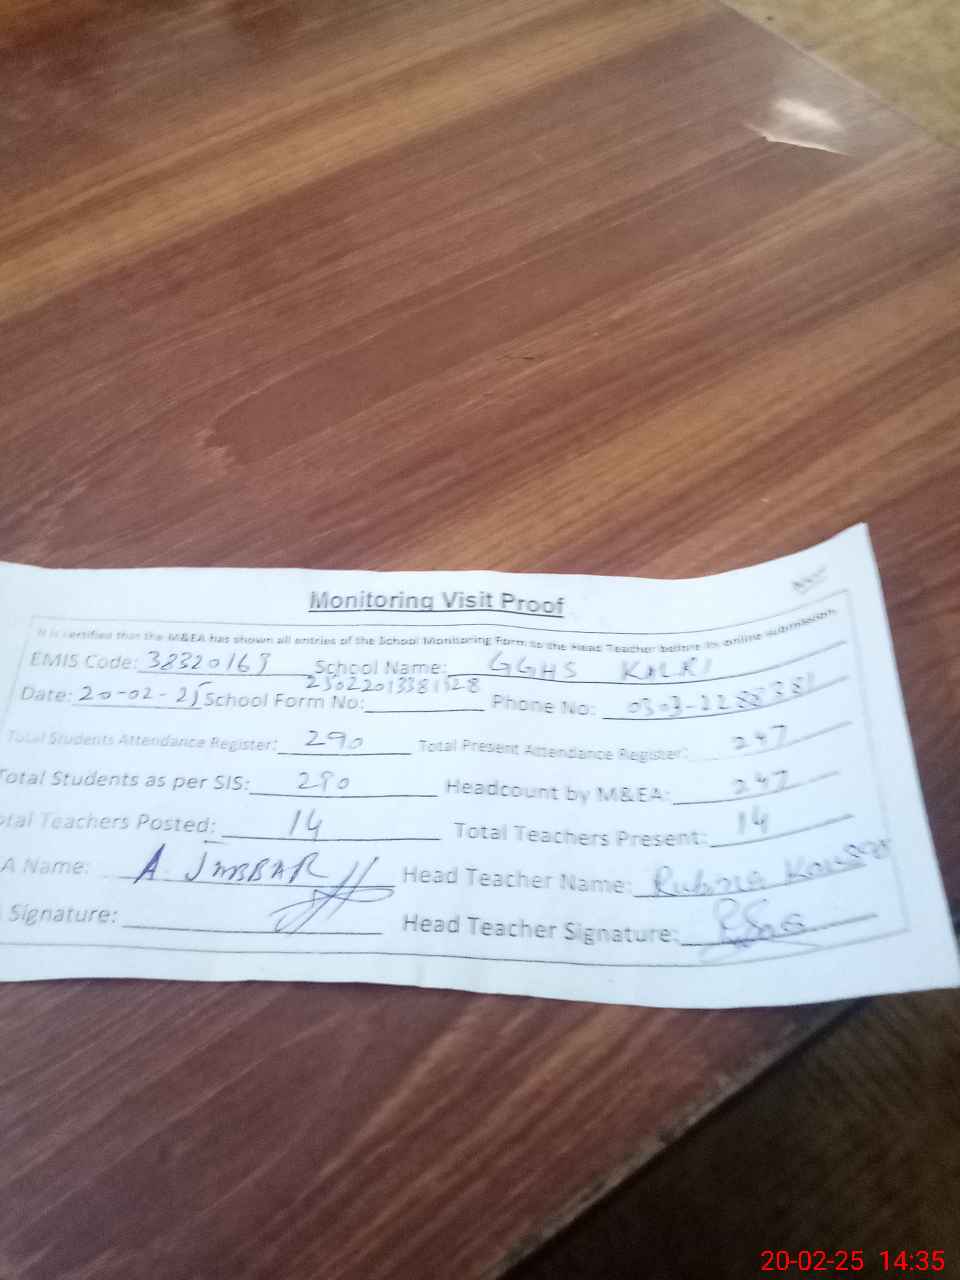 Monitoring Visit Proof
It is certified that the M&EA has shown all entries of the School Monitoring Form to the Head Teacher before its online submission
EMIS Code: 38320169 School Name: GGHS KALRI
Date: 20-02-25 School Form No: Phone No: 0303-2288381
Total Students Attendance Register: 290 Total Present Attendance Register: 247
Total Students as per SIS: 290 Headcount by M&EA: 247
otal Teachers Posted: 14 Total Teachers Present: 14
A Name: A. JABBAR Head Teacher Name: Rubina Kousar
Signature: Head Teacher Signature:
20-02-25 14:35